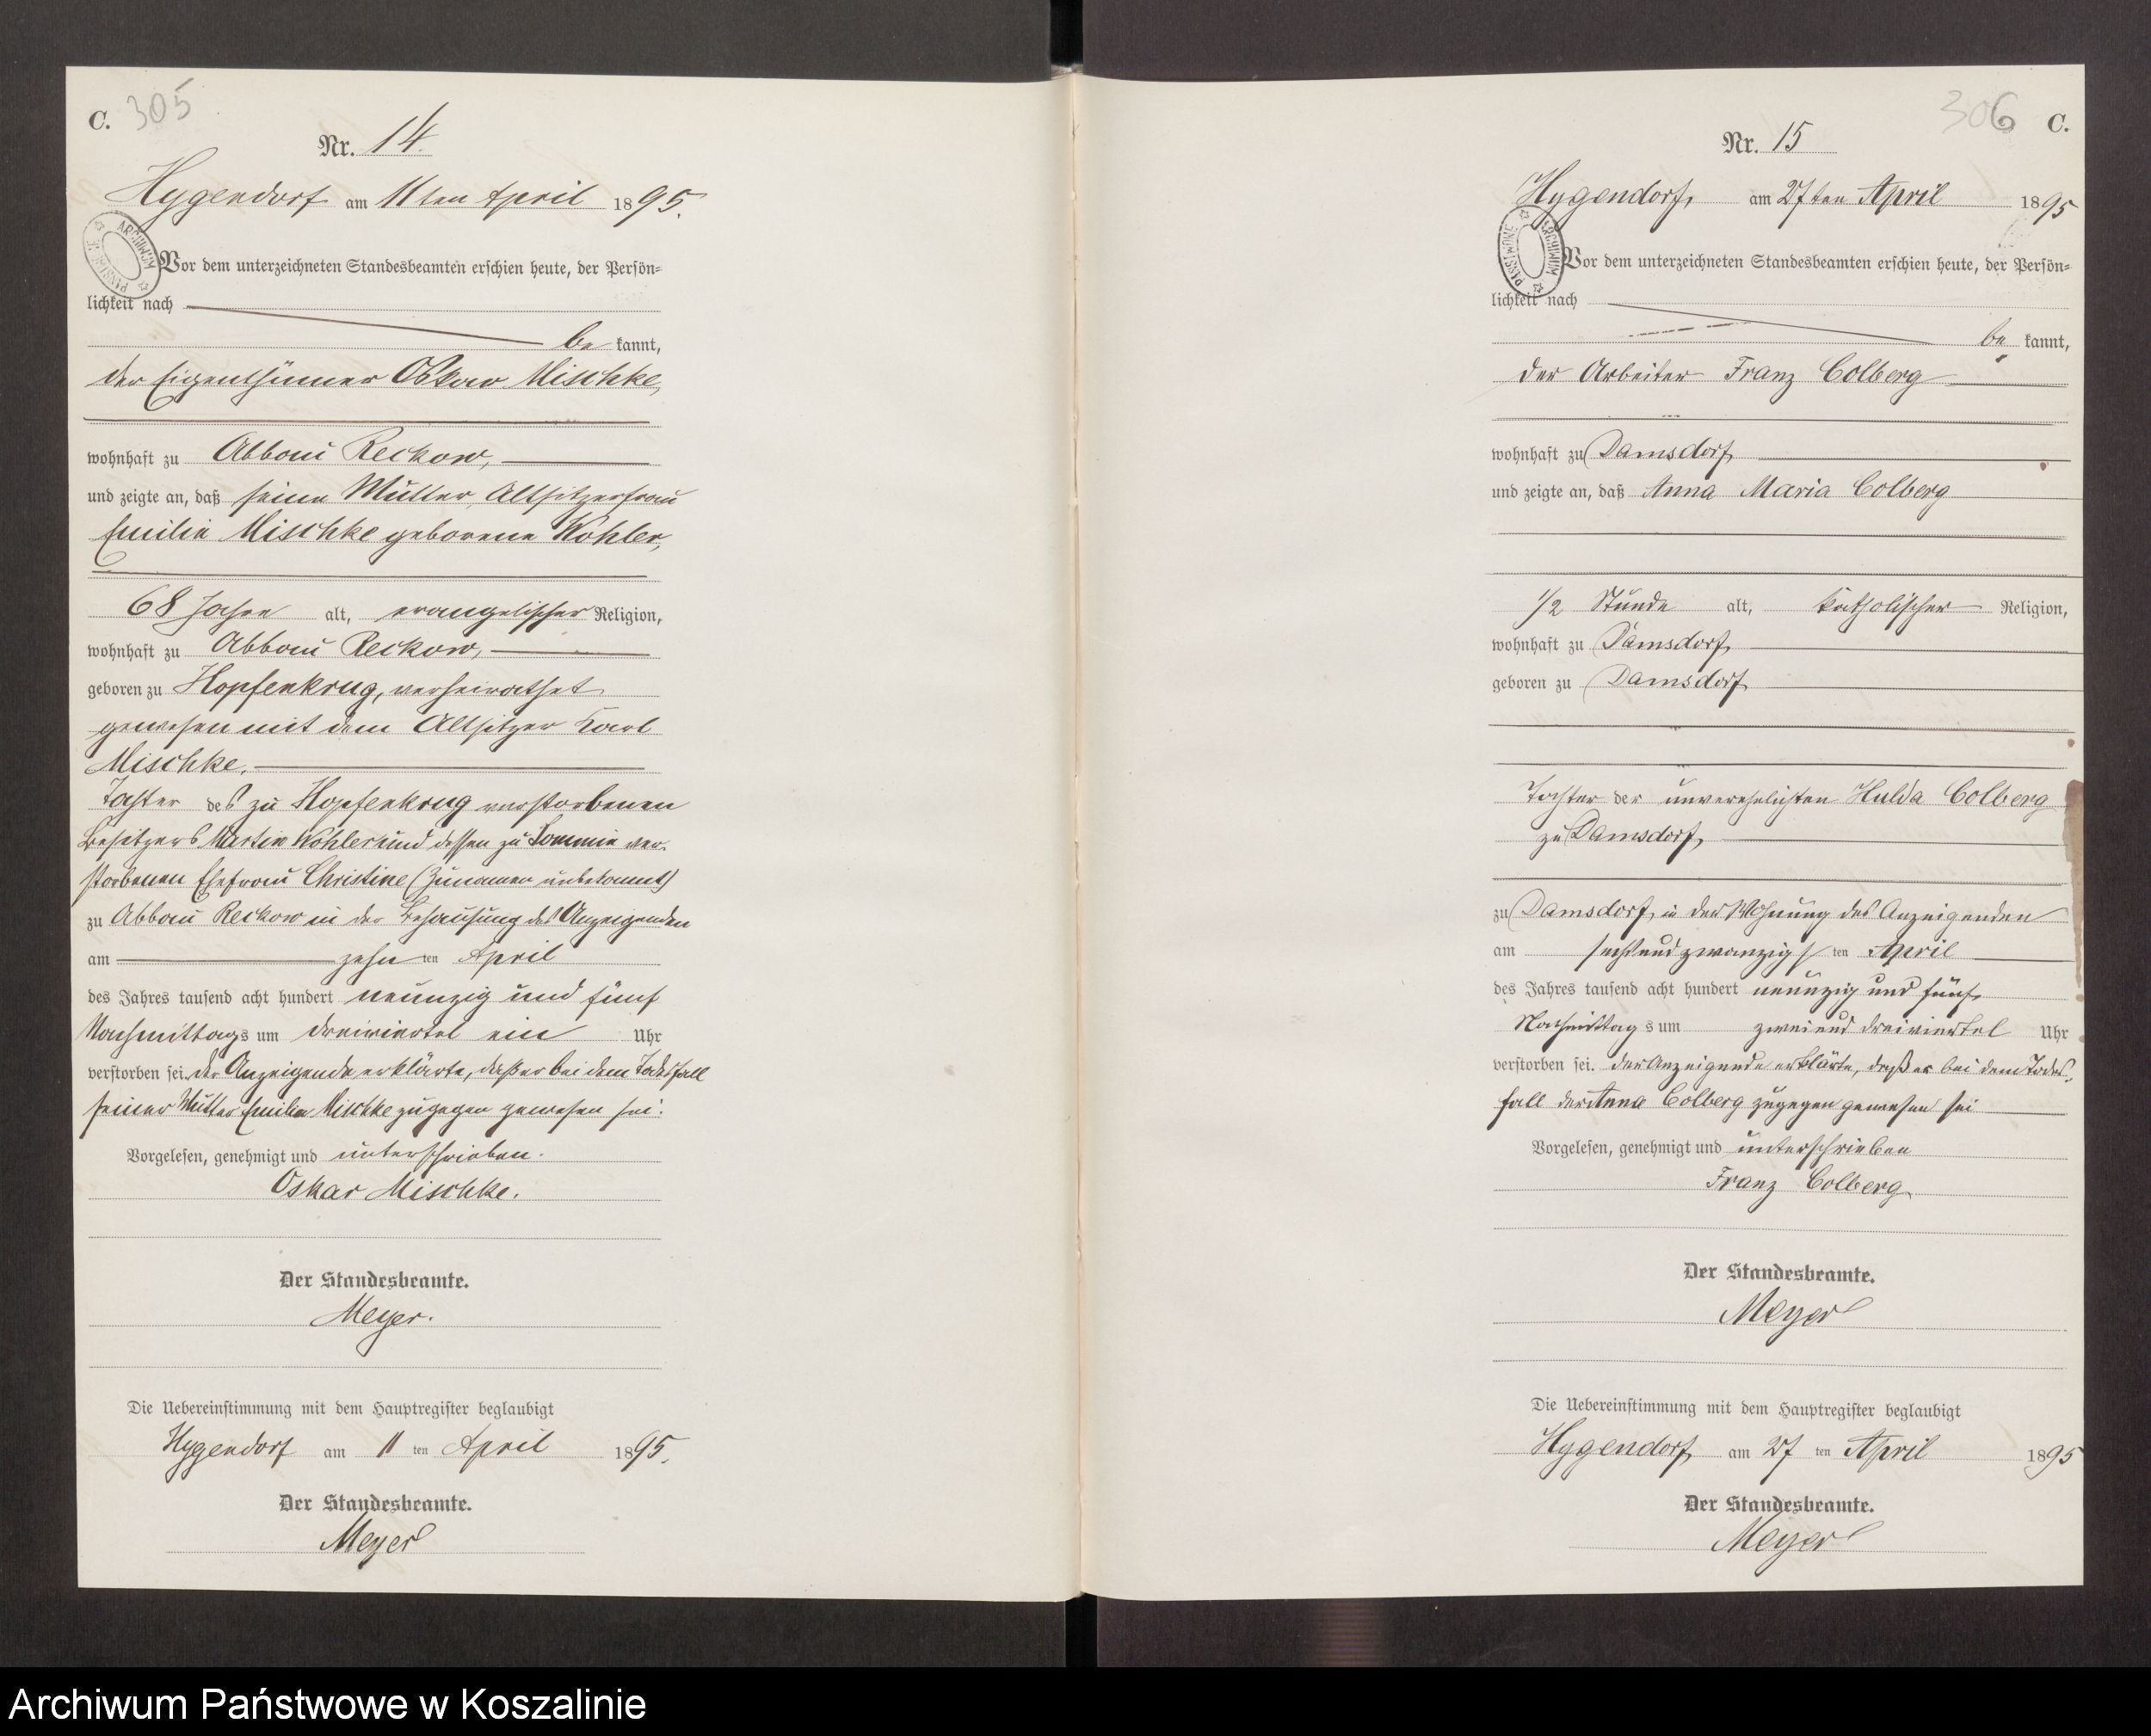 C. 305
Nr. 14.
Hygendorf am 11ten April 1895.
ARCHIWUM PAŃSTWOWE
Vor dem unterzeichneten Standesbeamten erschien heute, der Persön-
lichkeit nach
be kannt,
der Eigenthümer Oskar Mischke,
wohnhaft zu Abbau Reckow,
und zeigte an, daß seine Mutter, Altsitzerfrau
Emilie Mischke geborene Wohler,
68 Jahre alt, evangelischer Religion,
wohnhaft zu Abbau Reckow,
geboren zu Hopfenkrug, verheirathet
gewesen mit dem Altsitzer Karl
Mischke.
Tochter des zu Hopfenkrug verstorbenen
Besitzers Martin Wohler und dessen zu Sommin ver-
storbenen Ehefrau Christine (Zunamen unbekannt)
zu Abbau Reckow in der Behausung des Anzeigenden
am zehn ten April
des Jahres tausend acht hundert neunzig und fünf
Nachmittags um dreiviertel ein Uhr
verstorben sei. Der Anzeigende erklärte, daß er bei dem Todesfall
seiner Mutter Emilie Mischke zugegen gewesen sei.
Vorgelesen, genehmigt und unterschrieben.
Oskar Mischke.
Der Standesbeamte.
Meyer.
Die Uebereinstimmung mit dem Hauptregister beglaubigt
Hygendorf am 11 ten April 1895.
Der Standesbeamte.
Meyer
306 C.
Nr. 15
Hygendorf, am 27ten April 1895
ARCHIWUM PAŃSTWOWE
Vor dem unterzeichneten Standesbeamten erschien heute, der Persön-
lichkeit nach
be kannt,
der Arbeiter Franz Colberg
wohnhaft zu Damsdorf
und zeigte an, daß Anna Maria Colberg
1/2 Stunde alt, katholischer Religion,
wohnhaft zu Damsdorf,
geboren zu Damsdorf
Tochter der unverehelichten Hulda Colberg
zu Damsdorf,
zu Damsdorf, in der Wohnung des Anzeigenden
am sechsundzwanzigs ten April
des Jahres tausend acht hundert neunzig und fünf
Nachmittag s um zwei und dreiviertel Uhr
verstorben sei. Der Anzeigende erklärte, daß er bei dem Todes-
fall der Anna Colberg zugegen gewesen sei
Vorgelesen, genehmigt und unterschrieben
Franz Colberg
Der Standesbeamte.
Meyer
Die Uebereinstimmung mit dem Hauptregister beglaubigt
Hygendorf, am 27 ten April 1895
Der Standesbeamte.
Meyer
Archiwum Państwowe w Koszalinie